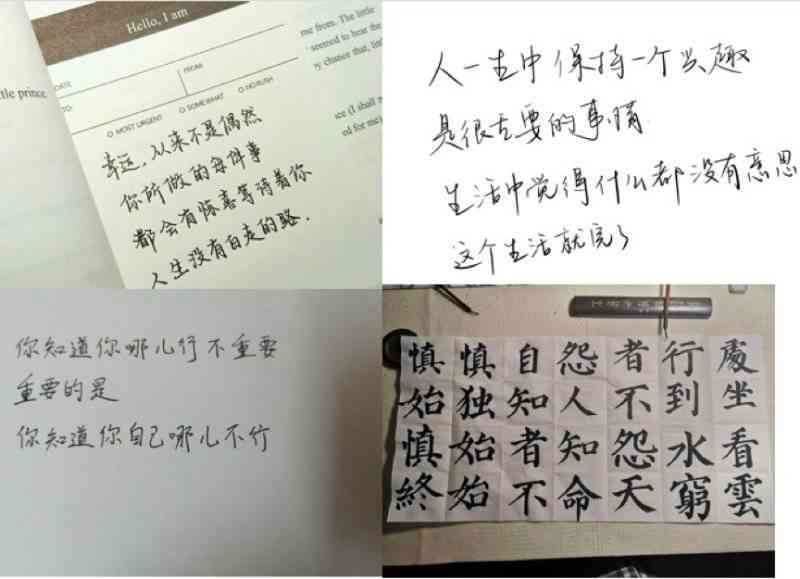 Hello, I am
DATE
FROM
TO:
MOST URGENT SOMEWHAT NO RUSH
me from. The little
seemed to hear the
chance that,
prince.
(I shall
for me
幸运,从来不是偶然
你所做的每件事
都会有惊喜等待着你
人生没有白走的路.
人一生中保持一个兴趣
是很重要的事情
生活中觉得什么都没有意思
这个生活就完了
你知道你哪儿行不重要
重要的是
你知道你自己哪儿不行
慎始慎終
慎独始始
自知者不
怨人知命
者不怨天
行到水窮
處坐看雲